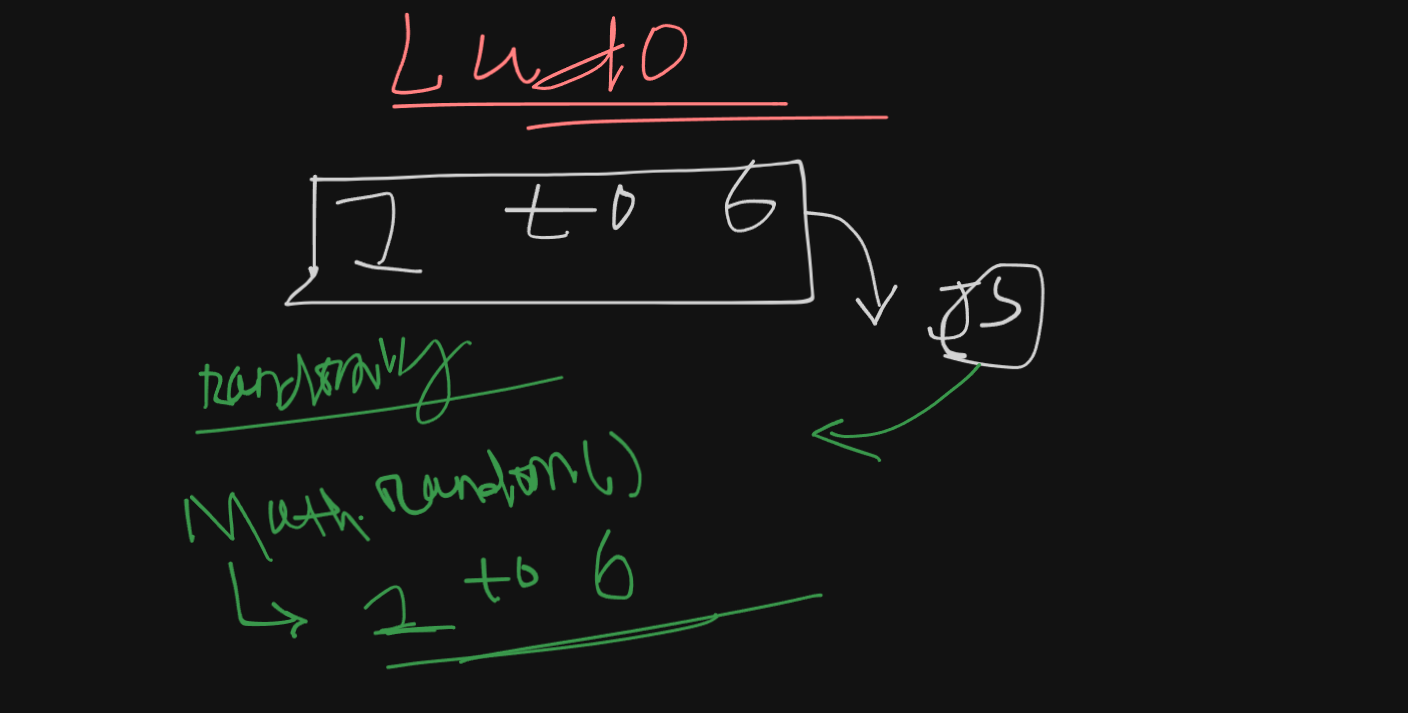 Ludo
1 to 6
JS
randomly
Math.Random()
1 to 6